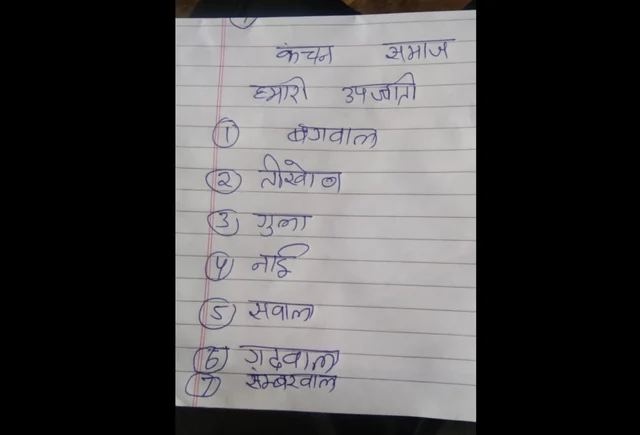 कंचन समाज
हमारी उपजाती
① बगवाल
② तीखोल
③ गुला
④ नाई
⑤ सवाल
⑥ गढवाल
⑦ सम्बरवाल